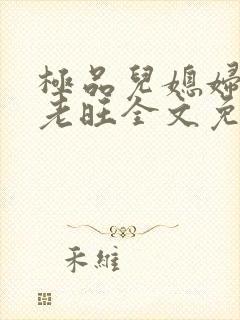 極品兒媳婦
老旺全文免
禾維